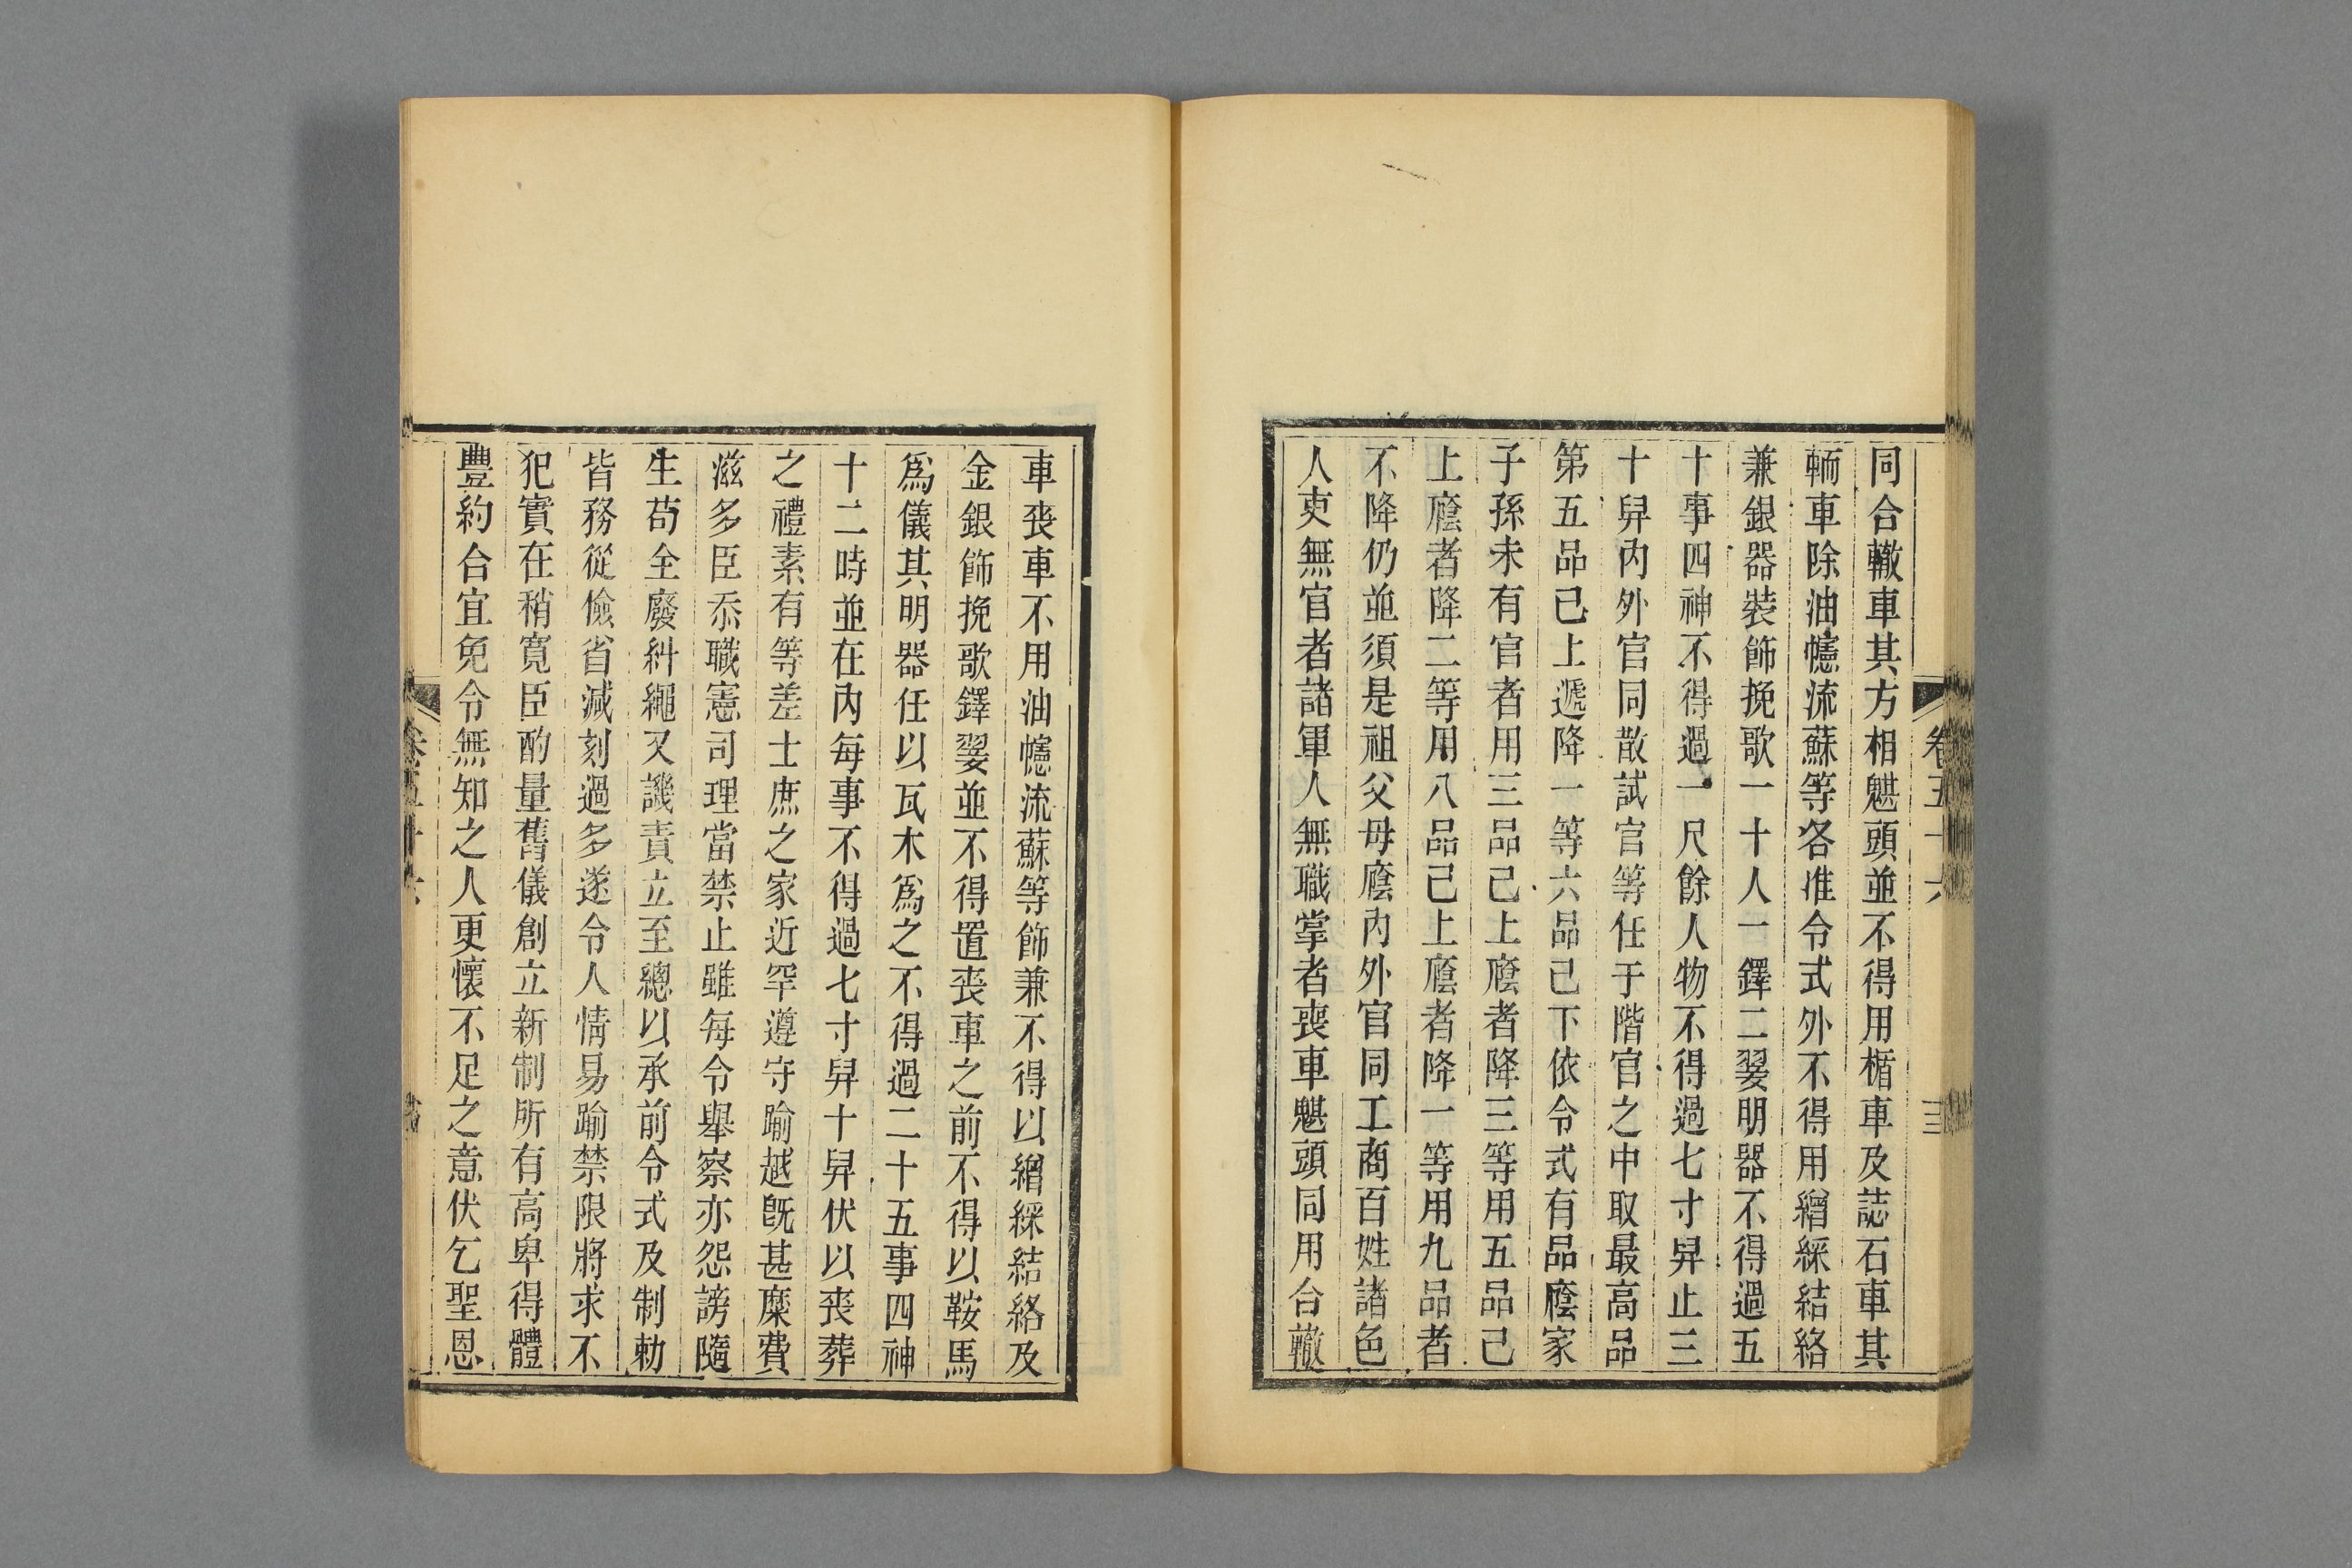 卷五十六
三
同合轍車其方相魌頭並不得用楯車及誌石車其
輀車除油幰流蘇等各准令式外不得用繒綵結絡
兼銀器裝飾挽歌一十人一鐸二翣明器不得過五
十事四神不得過一尺餘人物不得過七寸舁止三
十舁內外官同散試官等任于階官之中取最高品
第五品已上遞降一等六品已下依令式有品廕家
子孫未有官者用三品已上廕者降三等用五品已
上廕者降二等用八品已上廕者降一等用九品者
不降仍並須是祖父母廕內外官同工商百姓諸色
人吏無官者諸軍人無職掌者喪車魌頭同用合轍
車喪車不用油幰流蘇等飾兼不得以繒綵結絡及
金銀飾挽歌鐸翣並不得置喪車之前不得以鞍馬
爲儀其明器任以瓦木爲之不得過二十五事四神
十二時並在內每事不得過七寸舁十舁伏以喪葬
之禮素有等差士庶之家近罕遵守踰越既甚糜費
滋多臣忝職憲司理當禁止雖每令舉察亦怨謗隨
生苟全廢糾繩又譏責立至總以承前令式及制勅
皆務從儉省減刻過多遂令人情易踰禁限將求不
犯實在稍寬臣酌量舊儀創立新制所有高卑得體
豐約合宜免令無知之人更懷不足之意伏乞聖恩
卷五十六